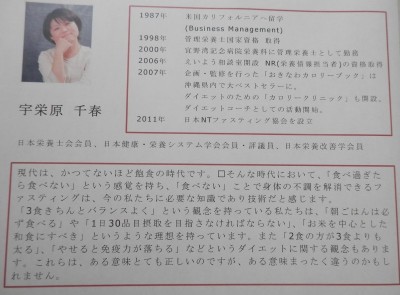 1987年 米国カリフォルニアへ留学
(Business Management)
1998年 管理栄養士国家資格 取得
2000年 宜野湾記念病院栄養科に管理栄養士として勤務
2006年 えいよう相談東開設 NR(栄養情報担当者)の資格取得
2007年 企画・監修を行った「おきなわカロリーブック」は
沖縄県内で大ベストセラーに。
ダイエットのための「カロリークリニック」も開設。
ダイエットコーチとしての活動開始。
2011年 日本NTファスティング協会を設立
宇栄原 千春
日本栄養士会会員、日本健康・栄養システム学会会員・評議員、日本栄養改善学会員
現代は、かつてないほど飽食の時代です。□そんな時代において、「食べ過ぎた
ら食べない」という感覚を持ち、「食べない」ことで身体の不調を解消できるフ
ァスティングは、今の私たちに必要な知識であり技術だと感じます。
「3食きちんとバランスよく」という観念を持っている私たちは、「朝ごはんは必
ず食べる」や「1日30品目摂取を目指さなければならない」、「お米を中心とした
和食にすべき」というような理想を持っています。また「2食の方が3食よりも
太る」、「やせると免疫力が落ちる」などというダイエットに関する観念もありま
す。これらは、ある意味とても正しいのですが、ある意味まったく違うのかもし
れません。